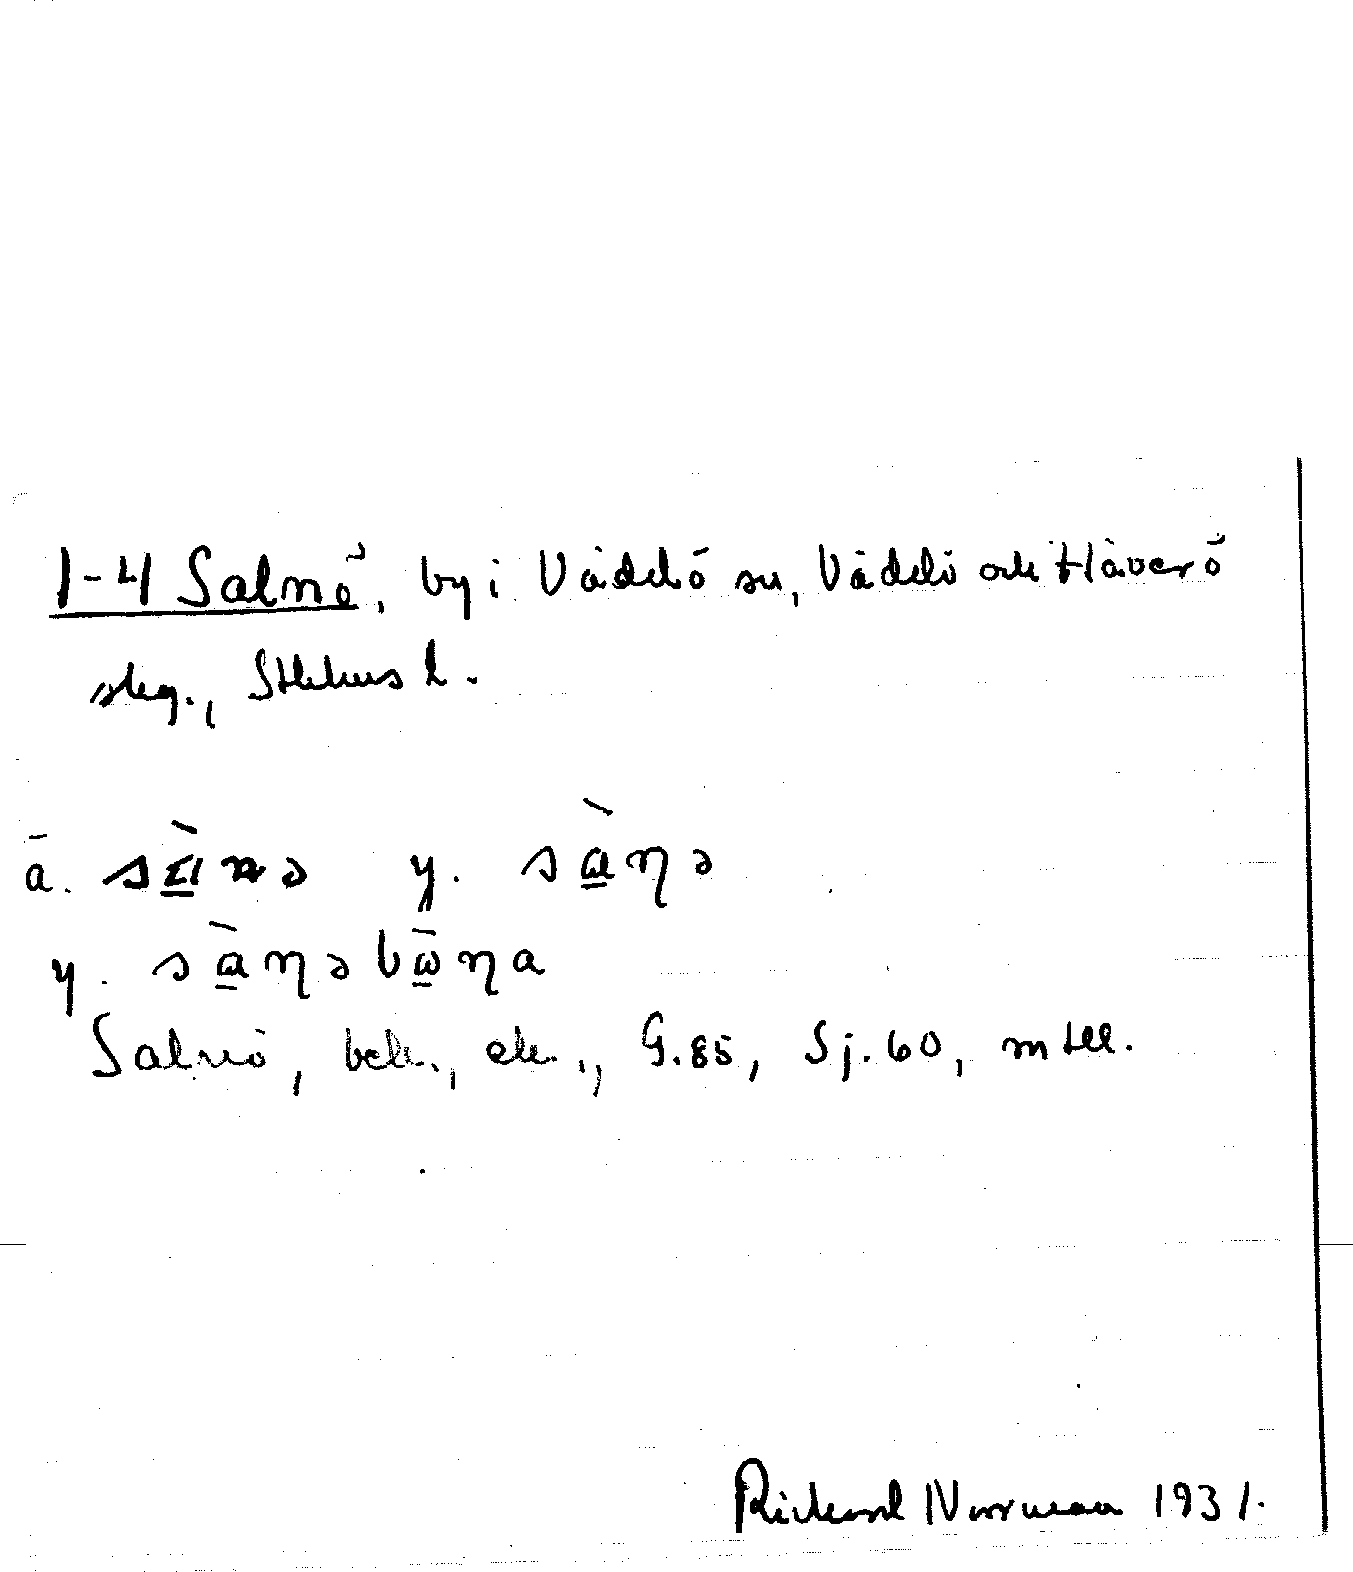 1-4 Salnö, by i Väddö sn, Väddö och Häverö
skg., Sthlms l.
ä. sà̲nə y. sà̲ŋə
y. sà̲ŋəbω̲̄ŋa
Salnö, bek., ek., G.85, Sj.60, mtll.
Rickard Norrman 1931.